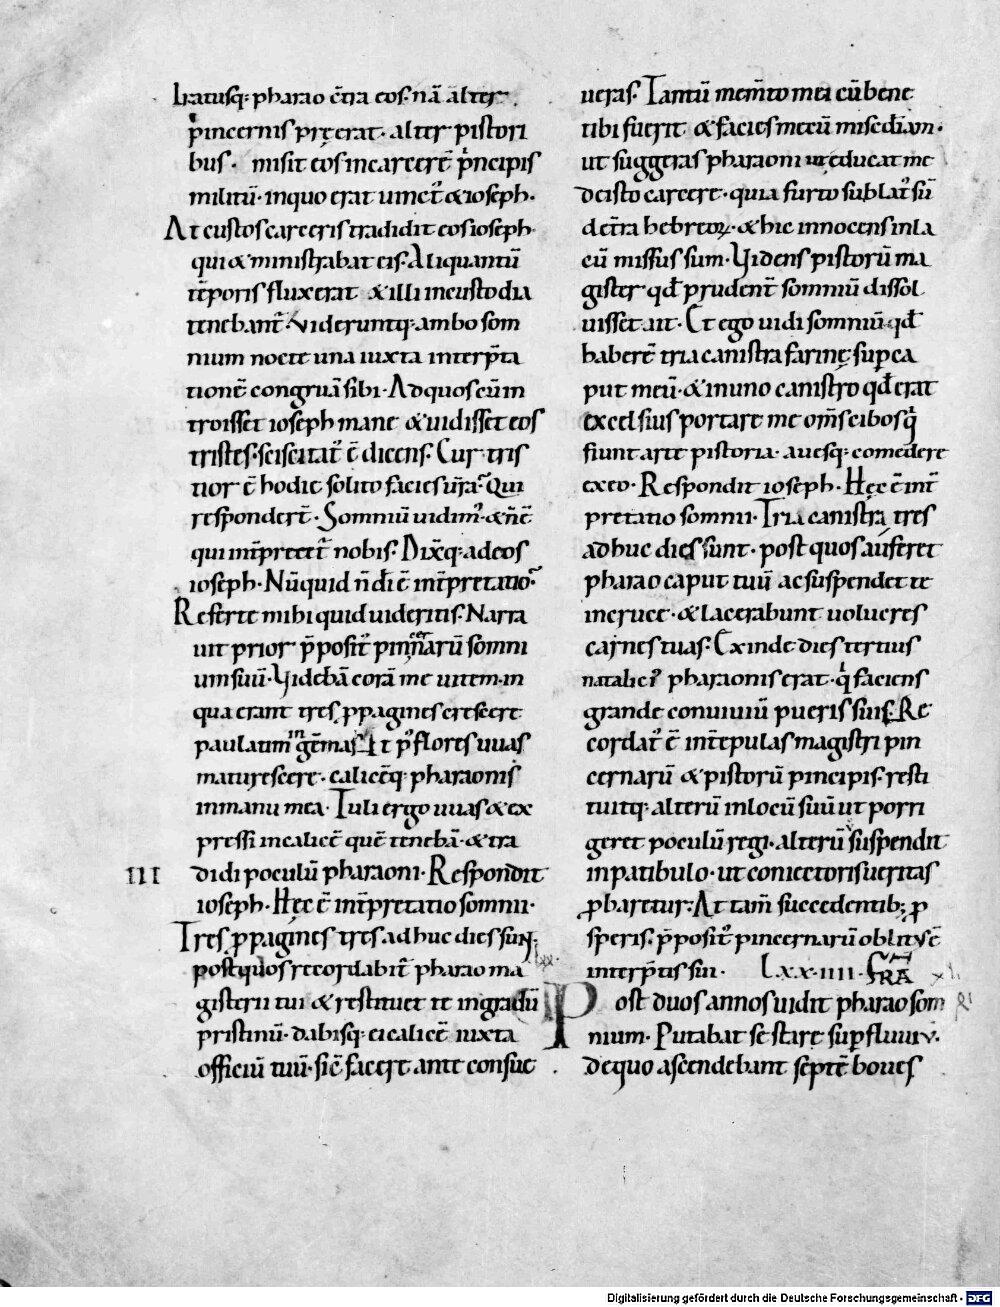 Iratusq; pharao c̄tra eos. nā alter
pincernis pręerat. alter pistori
bus. misit eos in carcerē p̄ncipis
militū. in quo erat uinct᷒ & ioseph.
At custos carceris tradidit eos ioseph
qui & ministrabat eis. Aliquantū
tēporis fluxerat & illi in custodia
tenebant᷒. Videruntq; ambo som
nium nocte una iuxta interp̄ta
tionē congruā sibi. Ad quos cū in
troisset ioseph mane & uidisset eos
tristes. sciscitat᷒ ē dicens. Cur tris
tior ē hodie solito facies ur̄a? Qui
responderē̄t. Somniū uidim᷒ & n̄ ē
qui int̄pretet᷒ nobis. Dixitq; ad eos
ioseph. Nūquid n̄ dī ē int̄pretatio?
Referte mihi quid uideritis. Narra
uit prior p̄posit᷒ pinc̄narū somni
um suū. Videbā corā me uitem. in
qua erant tres ppagines crescere
paulatim in gēmas. Et p᷒ flores uuas
maturescere. calicēq; pharaonis
in manu mea. Tuli ergo uuas & ex
pressi in calicē quē tenebā. & tra
III didi poculū pharaoni. Respondit
ioseph. Hęc ē int̄pretatio somnii.
Tres ppagines tres adhuc dies sunt.
post quos recordabit᷒ pharao ma
gisterii tui & restituet te in gradū
pristinū. dabisq; ei calicē iuxta
officiū tuū. sic̄ facere ante consue
ueras. Tantū mem̄to mei cū bene
tibi fuerit & facies mecū mis̄cdiam.
ut suggeras pharaoni ut educat me
de isto carcere. quia furto sublat᷒ sū
de t̄ra hebreoꝝ. & hic innocens in la
cū missus sum. Videns pistorū ma
gister qđ prudent̄ somniū dissol
uisset ait. Et ego uidi somniū qđ
haberē tria canistra farinę sup ca
put meū. & in uno canistro qđ erat
excelsius portare me om̄s cibos q̄
fiunt arte pistoria. auesq; comedere
ex eo. Respondit ioseph. Hęc ē int̄
pretatio somnii. Tria canistra tres
adhuc dies sunt. post quos auferet
pharao caput tuū ac suspendet te
in cruce. & lacerabunt uolucres
carnes tuas. Exinde dies tertius
natalici᷒ pharaonis erat. q̄ faciens
grande conuiuiū pueris suis. Re
cordat᷒ ē int̄ epulas magistri pin
cernarū & pistorū principis. resti
tuitq; alterū in locū suū ut porri
geret poculū regi. alterū suspendit
in patibulo. ut coniectoris ueritas
ꝓbaretur. At tam̄ succedentib; ꝓ
speris. p̄posit᷒ pincernarū oblitus ē
interp̄tis sui. LXXIIII FRĀ
Post duos annos uidit pharao som
nium. Putabat se stare sup fluuiū.
de quo ascendebant septē boues